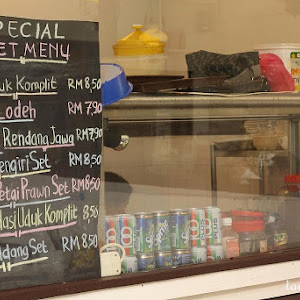 SPECIAL
SET MENU
Uduk Komplit RM 8,50
Lodeh RM 7,90
Rendang Jawa RM7,90
Tengiri Set RM 8,50
Petai Prawn Set RM 8,50
Nasi Uduk Komplit 8.50
Rendang Set RM 8.50
100
100